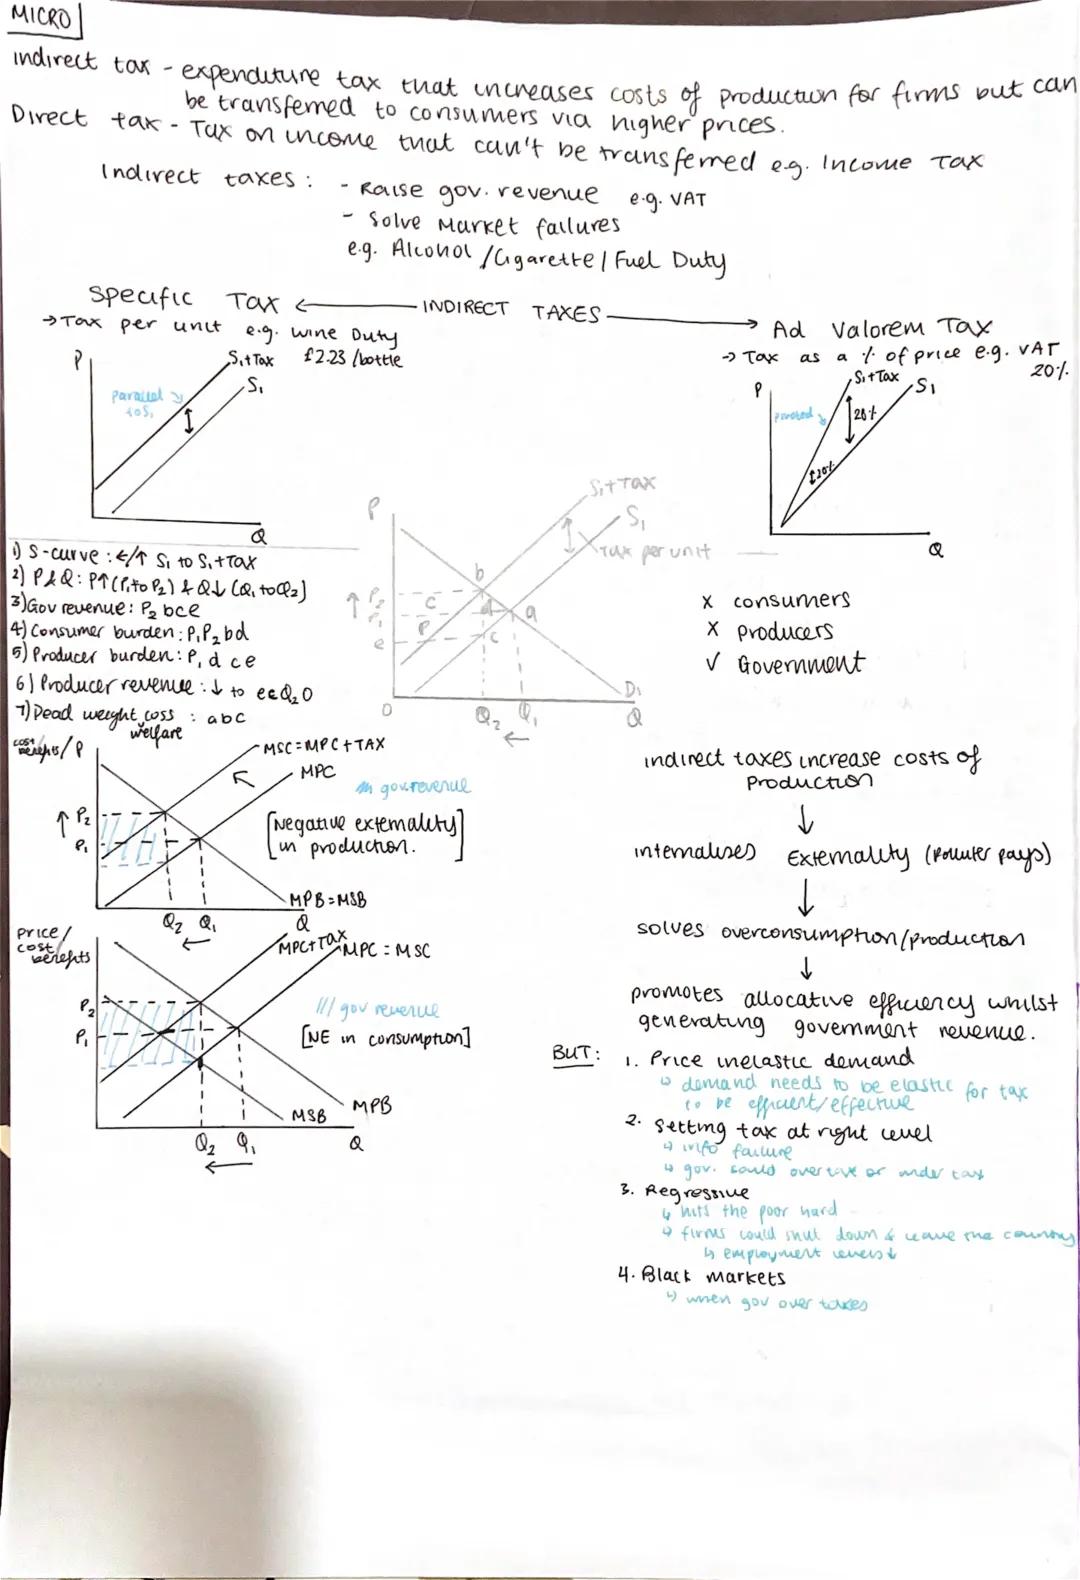 MICRO
indirect tax - expenditure tax that increases costs of production for firms but can
be transferred to consumers via higher prices.
Direct tax - Tax on income that can't be transferred e.g. Income Tax
Indirect taxes : - Raise gov. revenue e.g. VAT
- Solve Market failures
e.g. Alcohol / Cigarette / Fuel Duty
Specific Tax ← INDIRECT TAXES → Ad Valorem Tax
→ Tax per unit e.g. wine Duty
£2.23 /bottle
→ Tax as a % of price e.g. VAT
20%
P
S₁+Tax
S₁
parallel
to S₁
Q
P
S₁+Tax
S₁
pivoted
20%
20%
Q
P
S₁+Tax
S₁
Tax per unit
b
↑ P₂
P₁
e
C
P
d
a
c
D₁
0
Q₂ Q₁
←
Q
1) S-curve : ←/↑ S₁ to S₁+Tax
2) P&Q : P↑ (P₁ to P₂) & Q↓ (Q₁ to Q₂)
3) Gov revenue : P₂ bce
4) Consumer burden : P₁P₂bd
5) Producer burden : P₁ d ce
6) Producer revenue : ↓ to ecQ₂O
7) Dead weight loss : abc
welfare
X consumers
X producers
✓ Government
cost/
benefits/P
MSC=MPC+TAX
MPC
gov revenue
[Negative externality
in production.]
↑ P₂
P₁
MPB=MSB
Q₂ Q₁
←
Q
Price/
cost/
benefits
MPC+Tax
MPC = MSC
/// gov revenue
[NE in consumption]
P₂
P₁
MSB
MPB
Q₂ Q₁
←
Q
indirect taxes increase costs of
production
↓
internalises Externality (Polluter pays)
↓
solves overconsumption/production
↓
promotes allocative efficiency whilst
generating government revenue.
BUT: 1. Price inelastic demand
↳ demand needs to be elastic for tax
to be efficient/effective
2. Setting tax at right level
↳ info failure
↳ gov. could over tax or under tax
3. Regressive
↳ hits the poor hard
↳ firms could shut down & leave the country
↳ employment levels ↓
4. Black markets
↳ when gov over taxes